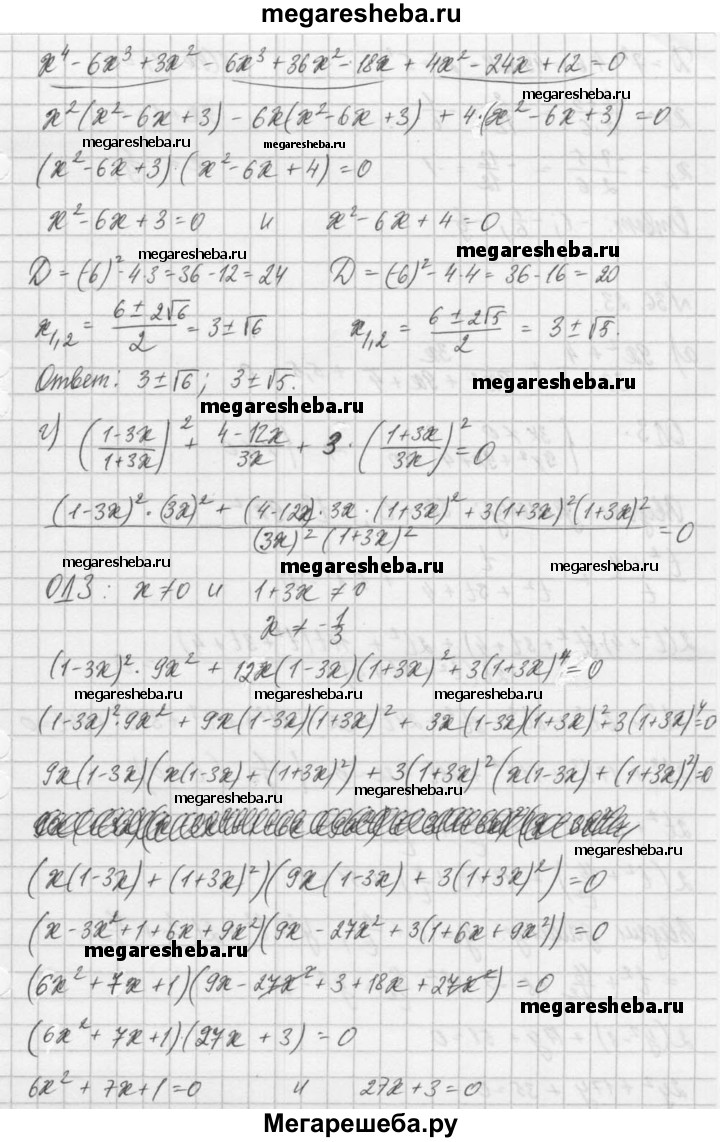 megaresheba.ru
x⁴ - 6x³ + 3x² - 6x³ + 36x² - 18x + 4x² - 24x + 12 = 0
x²(x² - 6x + 3) - 6x(x² - 6x + 3) + 4·(x² - 6x + 3) = 0
megaresheba.ru megaresheba.ru megaresheba.ru
(x² - 6x + 3)·(x² - 6x + 4) = 0
x² - 6x + 3 = 0 и x² - 6x + 4 = 0
megaresheba.ru megaresheba.ru
D = (-6)² - 4·3 = 36 - 12 = 24 D = (-6)² - 4·4 = 36 - 16 = 20
x₁,₂ = (6 ± 2√6)/2 = 3 ± √6 x₁,₂ = (6 ± 2√5)/2 = 3 ± √5.
Ответ: 3 ± √6; 3 ± √5.
megaresheba.ru
megaresheba.ru
г) ((1-3x)/(1+3x))² + (4-12x)/3x + 3·((1+3x)/3x)² = 0
((1-3x)²·(3x)² + (4-12x)·3x·(1+3x)² + 3(1+3x)²(1+3x)²)/((3x)²(1+3x)²) = 0
megaresheba.ru megaresheba.ru megaresheba.ru
ОДЗ: x ≠ 0 и 1+3x ≠ 0
x ≠ -1/3
(1-3x)²·9x² + 12x(1-3x)(1+3x)² + 3(1+3x)⁴ = 0
megaresheba.ru megaresheba.ru megaresheba.ru megaresheba.ru
(1-3x)²·9x² + 9x(1-3x)(1+3x)² + 3x(1-3x)(1+3x)² + 3(1+3x)⁴ = 0
9x(1-3x)(x(1-3x) + (1+3x)²) + 3(1+3x)²(x(1-3x) + (1+3x)²) = 0
megaresheba.ru megaresheba.ru
megaresheba.ru
(x(1-3x) + (1+3x)²)(9x(1-3x) + 3(1+3x)²) = 0
(x - 3x² + 1 + 6x + 9x²)(9x - 27x² + 3(1 + 6x + 9x²)) = 0
megaresheba.ru
(6x² + 7x + 1)(9x - 27x² + 3 + 18x + 27x²) = 0
megaresheba.ru
(6x² + 7x + 1)(27x + 3) = 0
6x² + 7x + 1 = 0 и 27x + 3 = 0
Мегарешеба.ру